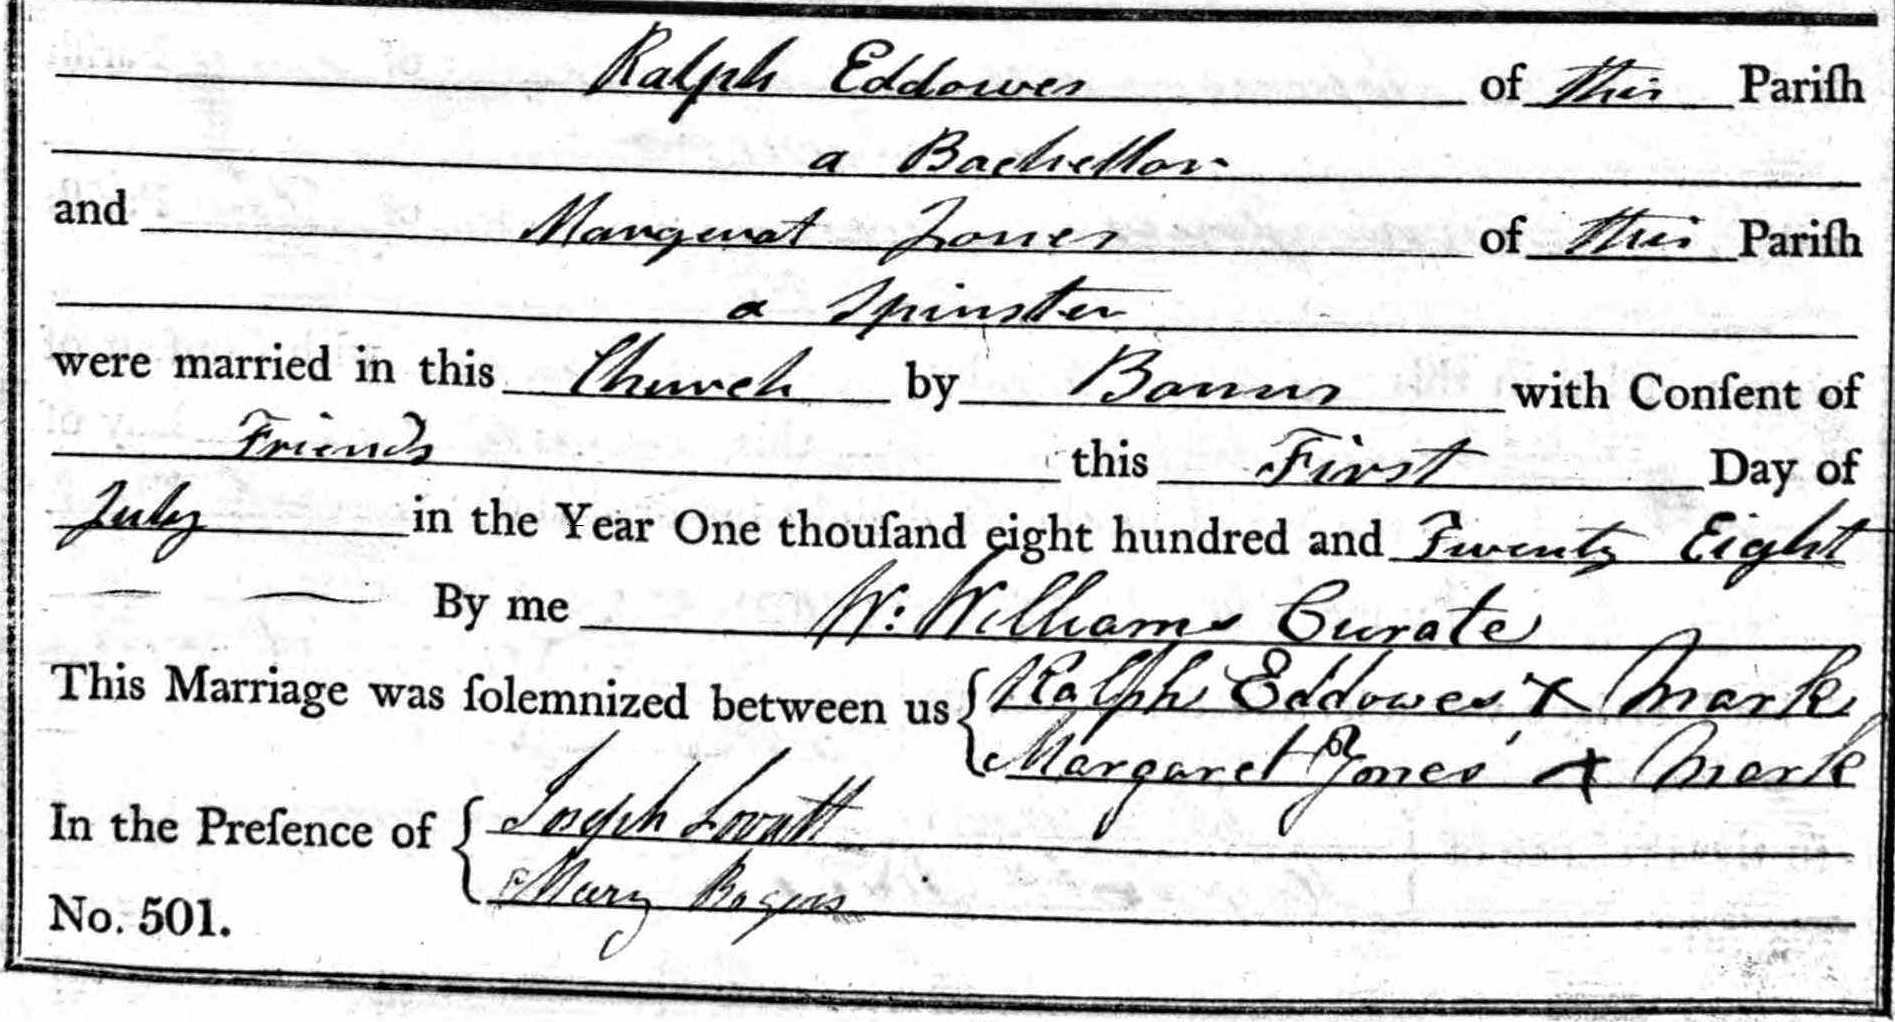 Ralph Eddowes of this Pariſh
a Bachellor
and Margerat Jones of this Pariſh
a Spinster
were married in this Church by Banns with Conſent of
Friends this First Day of
July in the Year One thouſand eight hundred and Twenty Eight
By me W: Williams Curate
This Marriage was ſolemnized between us { Ralph Eddowes x Mark
Margaret Jones x Mark
In the Preſence of { Joseph Lovatt
Mary Rogers
No. 501.